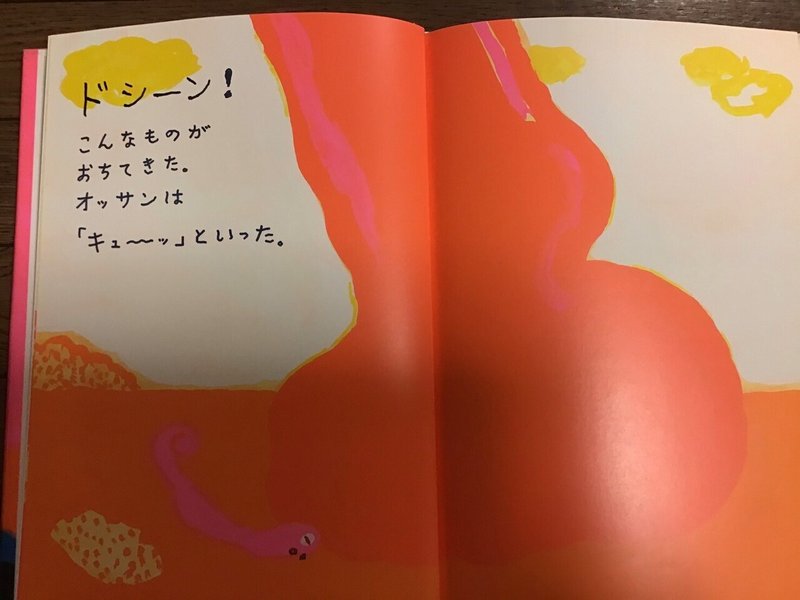 ドシーン!
こんなものが
おちてきた。
オッサンは
「キュ〜〜ッ」といった。